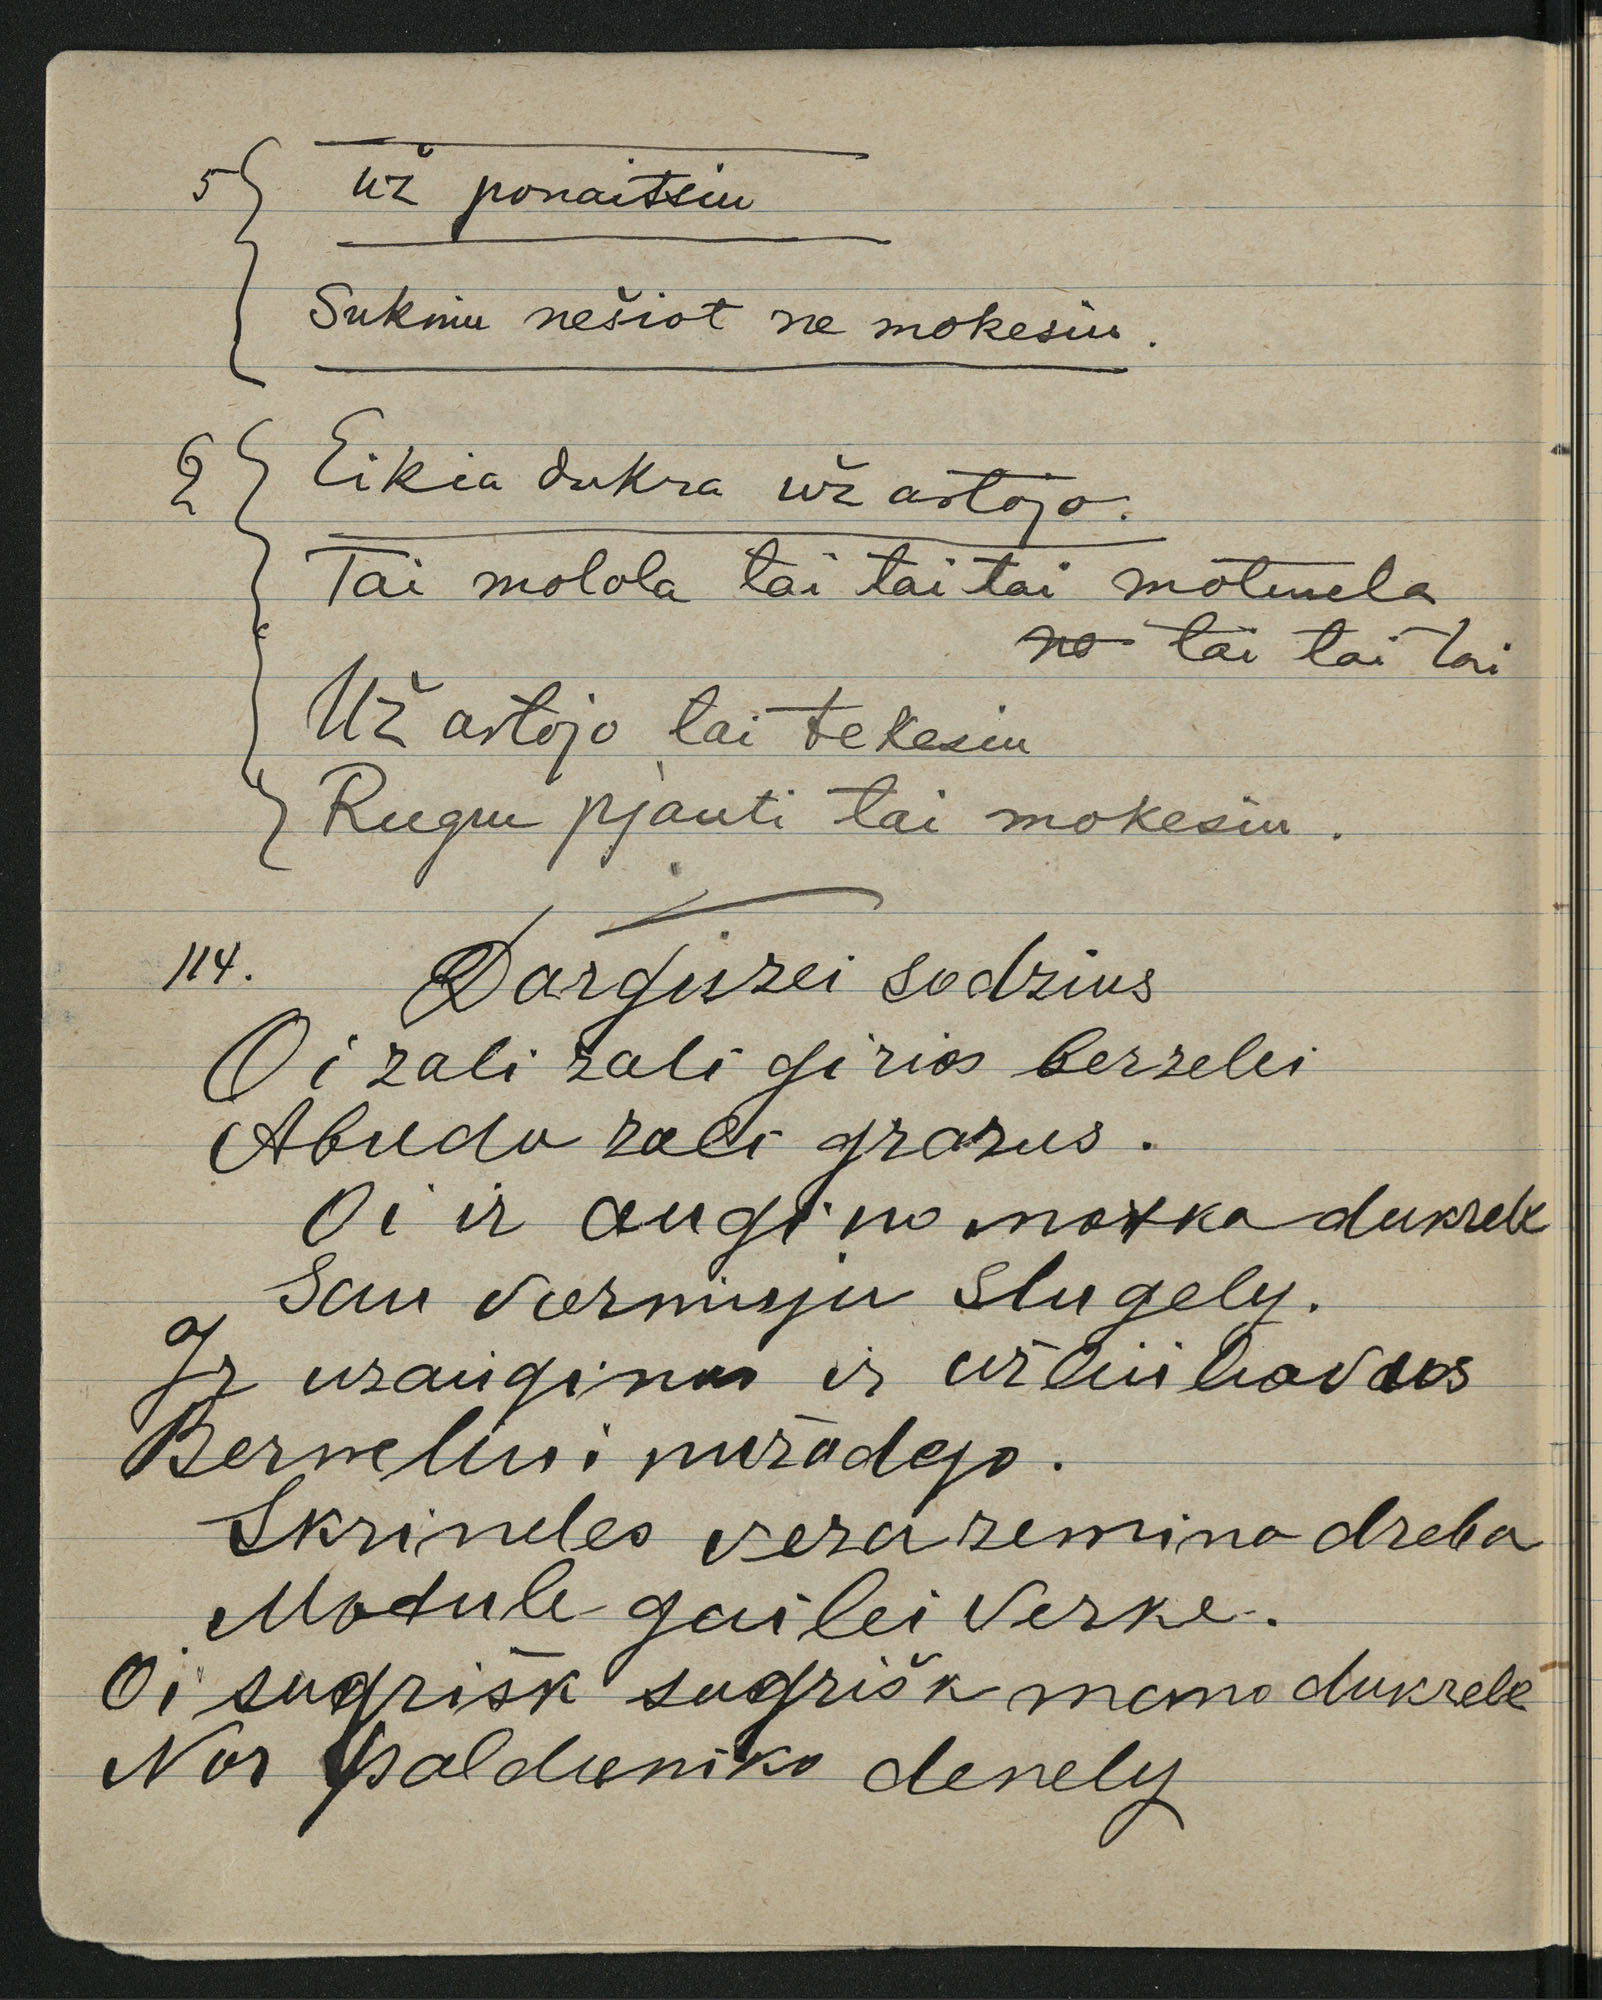 5 už ponaitsiu
Sukniu nešiot ne mokesiu.
2 Eikia dukra už artojo.
Tai molola tai tai tai motinela
no tai tai tai
Už artojo tai tekesiu
Rugiu pjauti tai mokesiu.
114. Darguzei sodzius
Oi zali zali girios berzelei
Abudu zali grazus.
Oi ir augino motka dukrele
Sau vierniuju slugely.
Ir uzaugino ir užliuliavus
Berneliui nužadejo.
Skrineles veza zemina dreba
Motule gailei verke.
Oi sugrišk sugrišk mano dukrele
Nor paldieniko denely